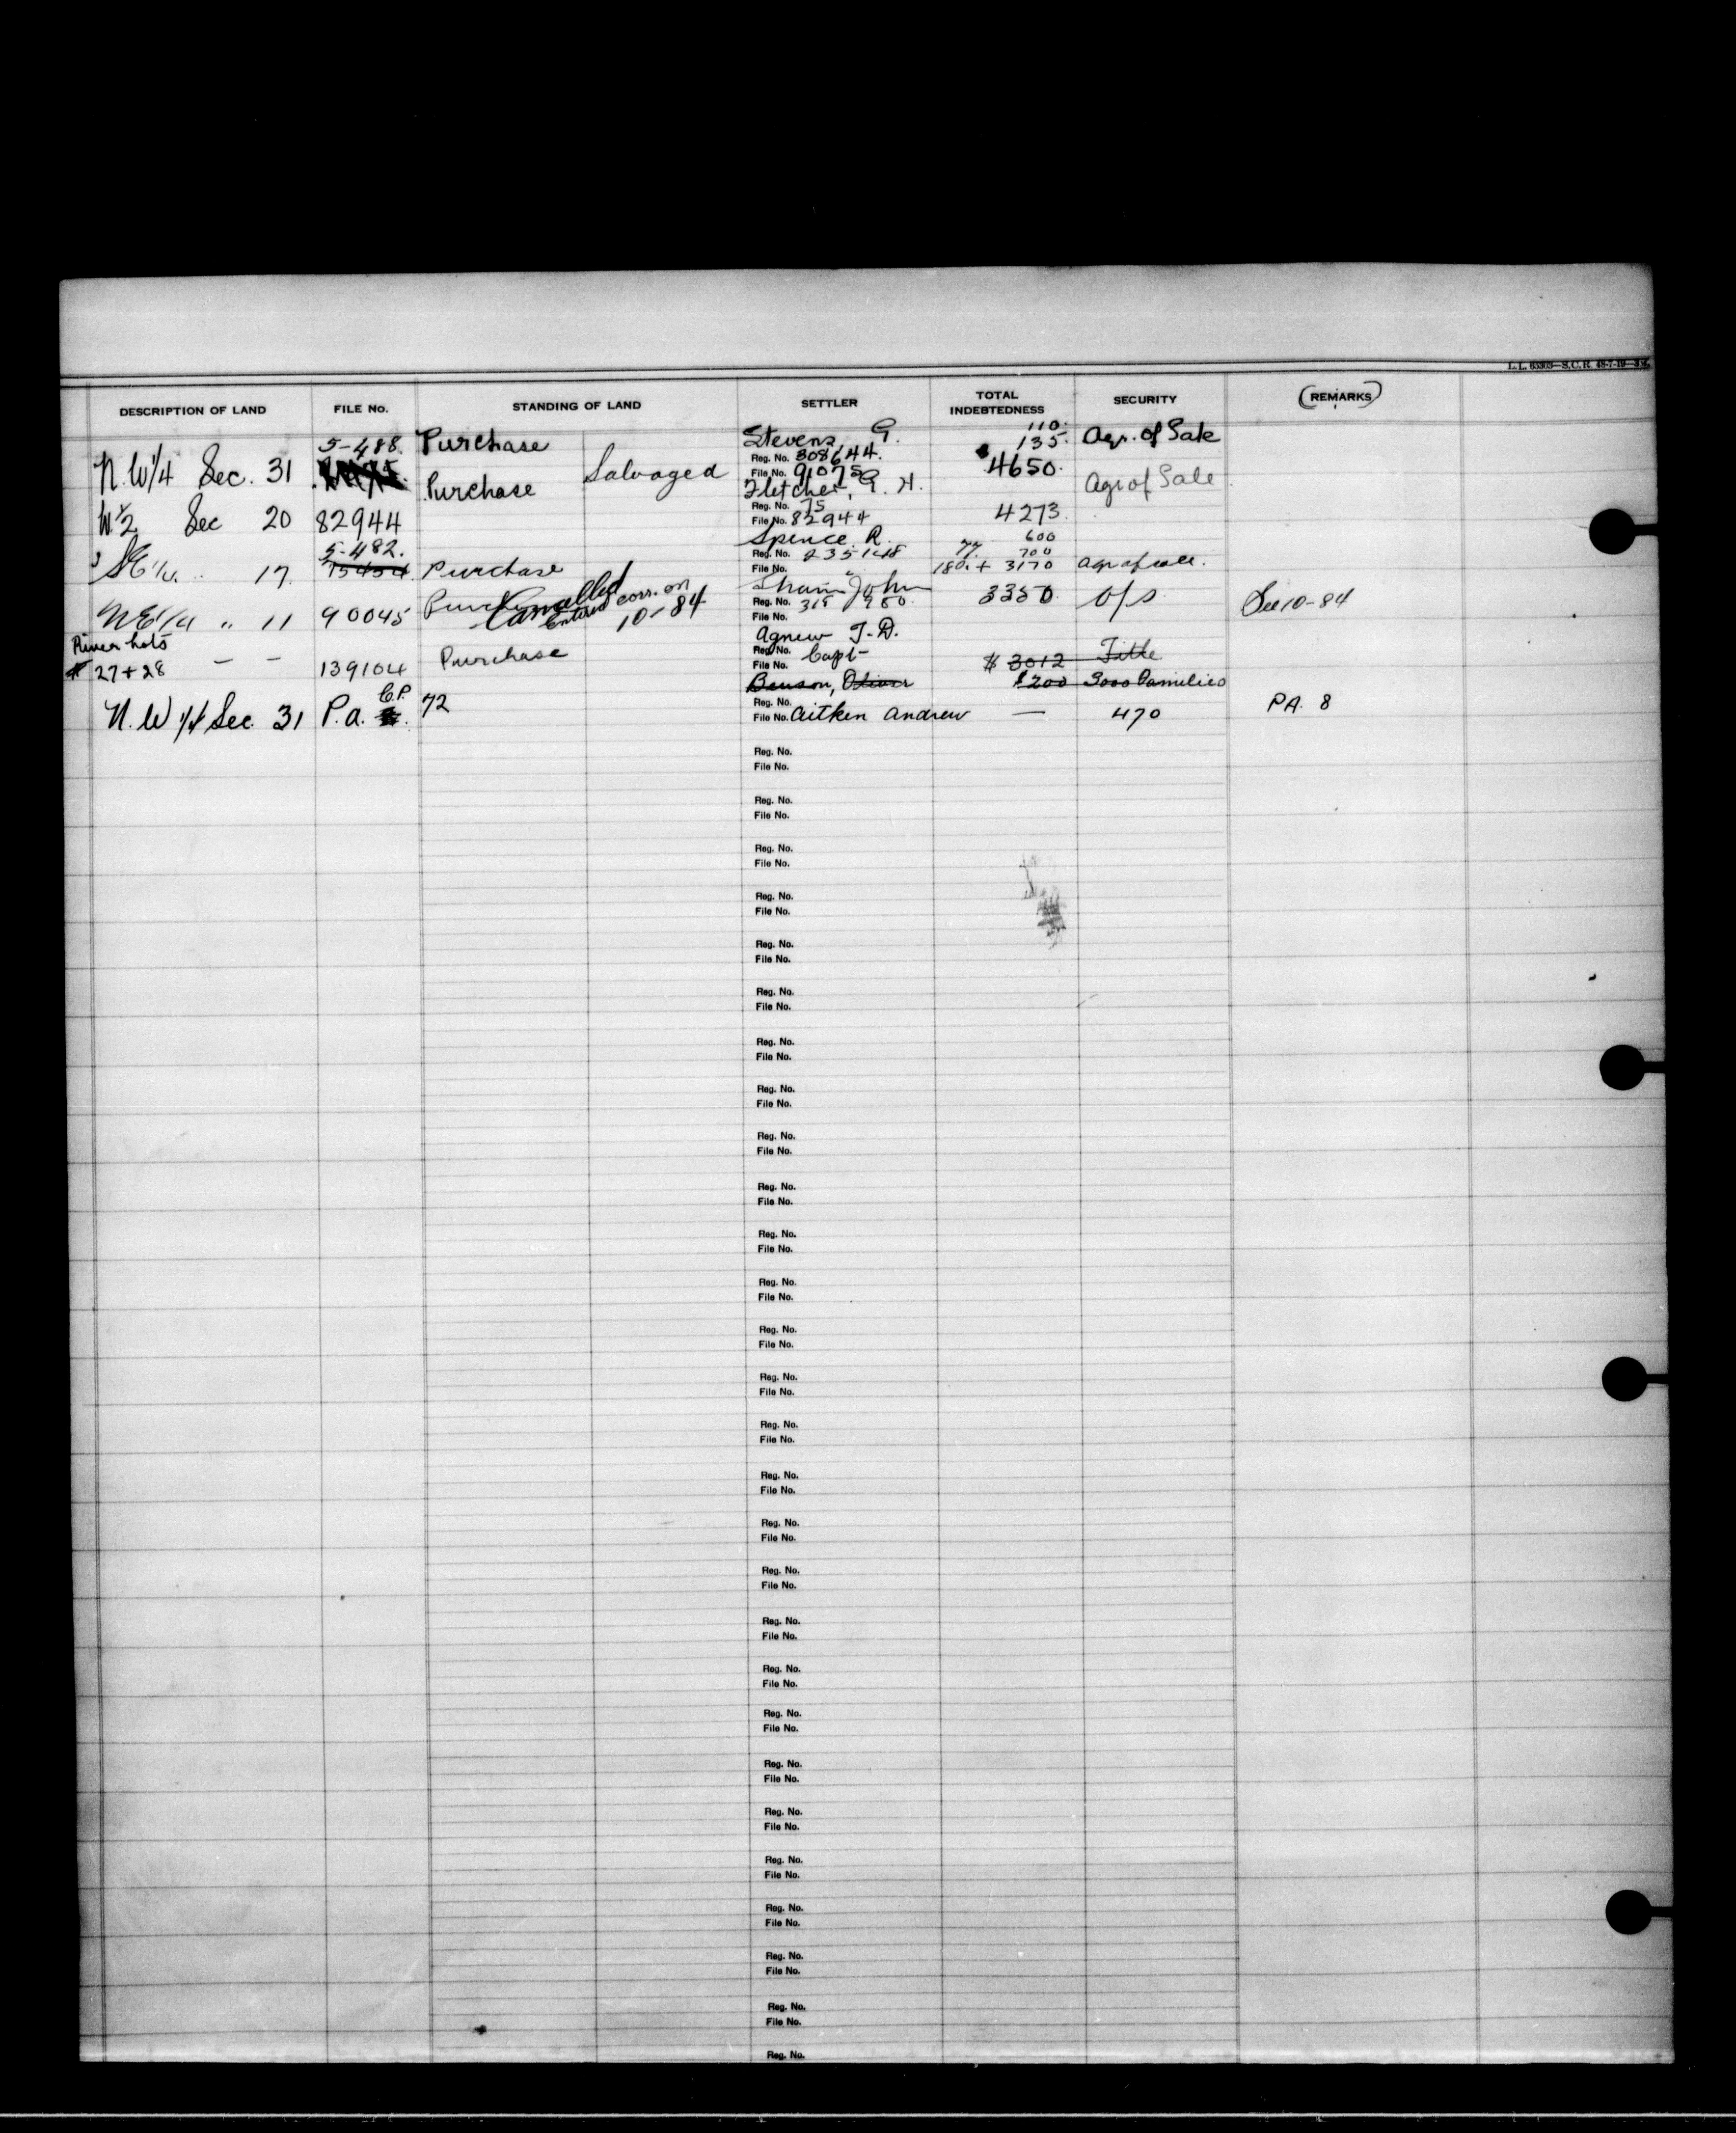 L.L. 65303—S.C.R. 48-7-19—
DESCRIPTION OF LAND FILE No. STANDING OF LAND SETTLER TOTAL INDEBTEDNESS SECURITY (REMARKS)
5-488. Purchase Stevens, G. 110. 135. Agr. of Sale
N.W1/4 Sec. 31 Salvaged Reg. No. 308644. 4650.
File No. 91075
Purchase Fletcher, G. H. Agr of Sale
W 1/2 Sec 20 82944 Reg. No. 75 4273.
File No. 82944
5-482. Spence R. 600
SE 1/4 " 17. 75454 Purchase Reg. No. 235148 77. 700
File No. 180. + 3170 agr of sale.
NE 1/4 " 11 90045 Purchase Cancelled Entered corr. on 10-84 John 3350 o/s See 10-84
Reg. No. 315 980.
File No.
River Lots Agnew J.D.
# 27 + 28 — — 139104 Purchase Reg. No. Capt- $ 3012 Title
File No.
Benson, Oliver $200 3000 Families
N.W 1/4 Sec. 31 P.A. C.P. 72 Reg. No.
File No. Aitken Andrew — 470 PA. 8
Reg. No.
File No.
Reg. No.
File No.
Reg. No.
File No.
Reg. No.
File No.
Reg. No.
File No.
Reg. No.
File No.
Reg. No.
File No.
Reg. No.
File No.
Reg. No.
File No.
Reg. No.
File No.
Reg. No.
File No.
Reg. No.
File No.
Reg. No.
File No.
Reg. No.
File No.
Reg. No.
File No.
Reg. No.
File No.
Reg. No.
File No.
Reg. No.
File No.
Reg. No.
File No.
Reg. No.
File No.
Reg. No.
File No.
Reg. No.
File No.
Reg. No.
File No.
Reg. No.
File No.
Reg. No.
File No.
Reg. No.
File No.
Reg. No.
File No.
Reg. No.